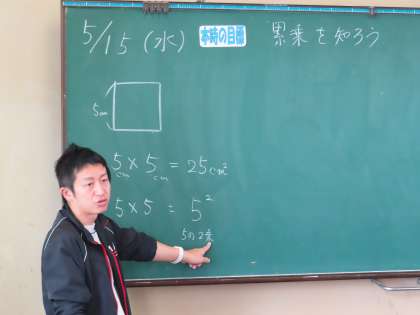 5/15（水） 本時の目標 累乗を知ろう
5cm
5cm × 5cm = 25cm²
5 × 5 = 5²
5の2乗